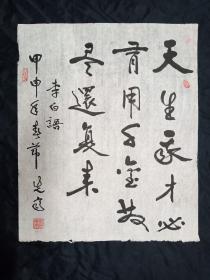 天生我才必
有用千金散
尽還复来
李白語
甲申年春節